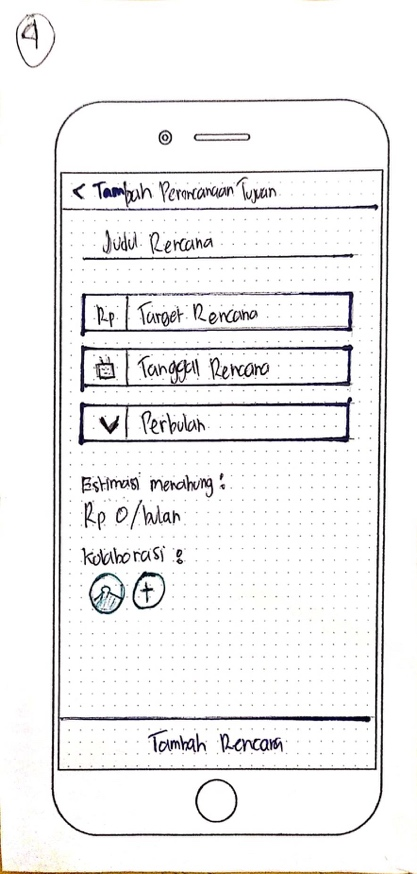 4
< Tambah Perencanaan Tujuan
Judul Rencana
Rp Target Rencana
Tanggal Rencana
Perbulan
Estimasi menabung :
Rp 0/bulan
Kolaborasi :
+
Tambah Rencana